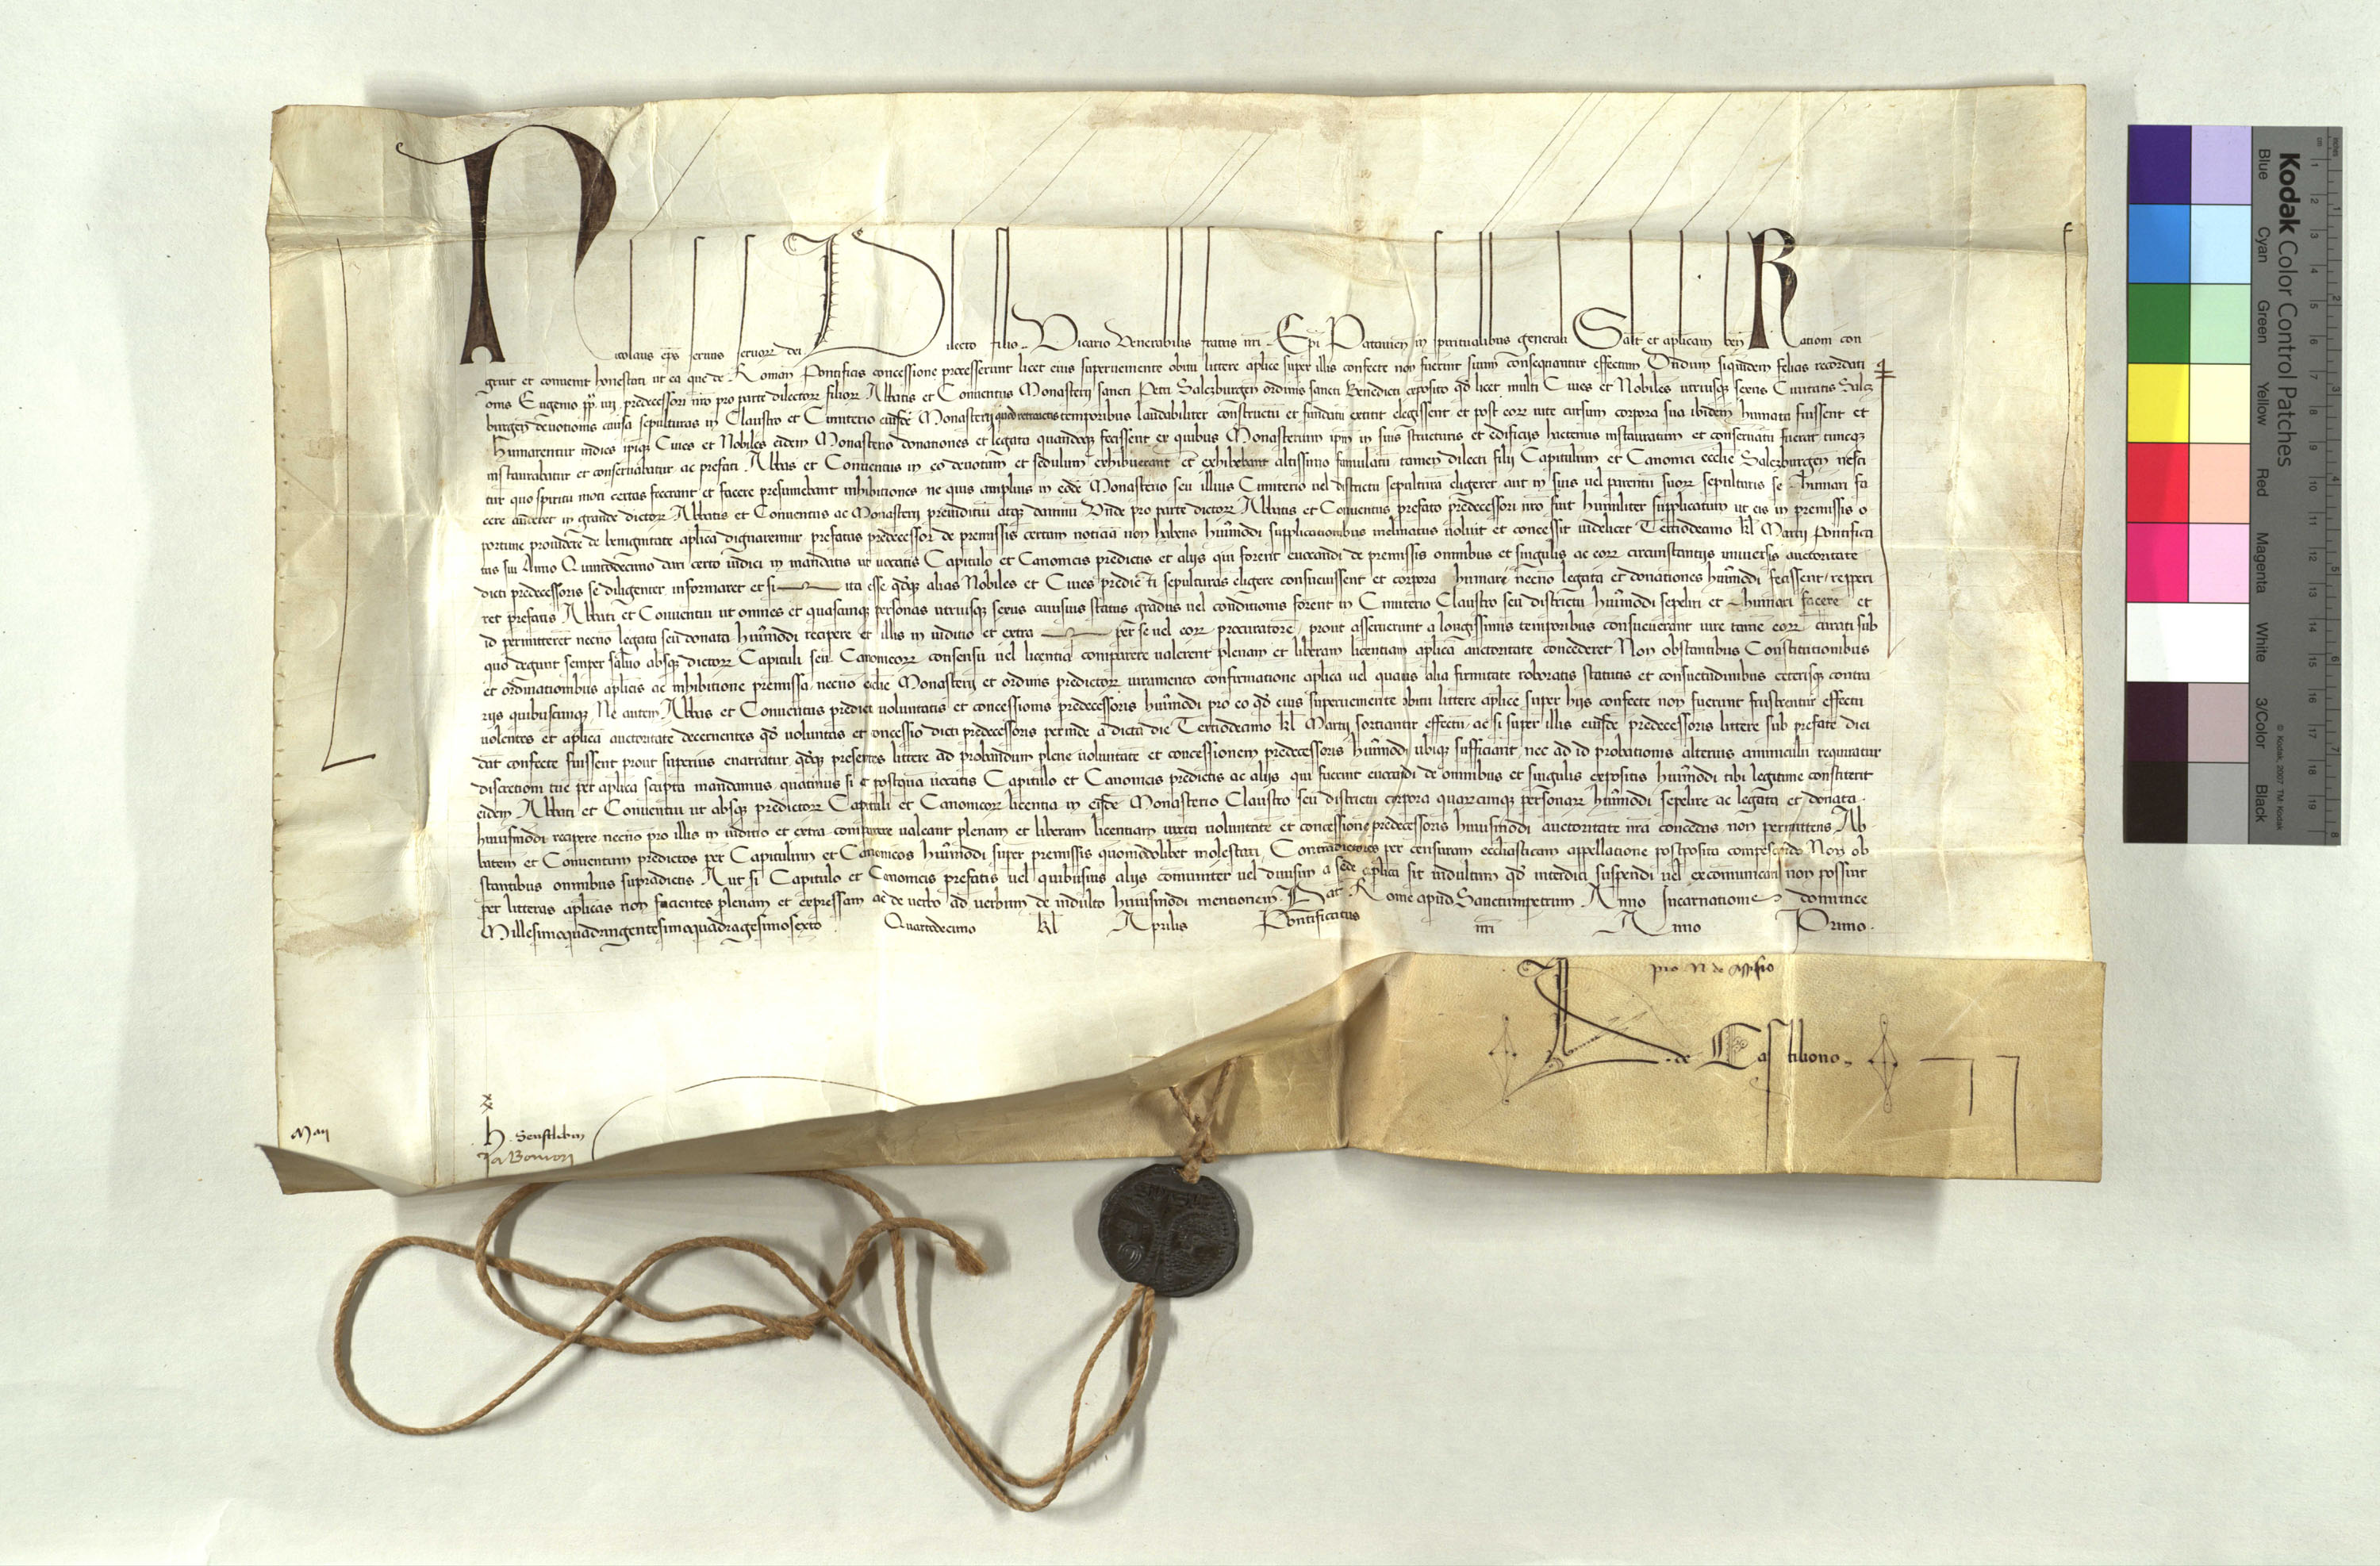 Nicolaus eps seruus seruorz dei Dilecto filio Vicario Venerabilis fratris nri Epi Patauien in spiritualibus generali Salt et aplicam ben Rationi con
gruit et conuenit honestati ut ea que de Roman Pontificis concessione processerunt licet eius superueniente obitu littere aplice super illis confecte non fuerint suum consequantur effectum Dudum siquidem felicis recordati
onis Eugenio pp iiii predecessori nro pro parte dilectorz filiorz Abbatis et Conuentus Monasterij sancti Petri Salezburgen ordinis sancti Benedicti exposito qd licet multi Ciues et Nobiles utriusqz sexus Ciuitatis Salez
burgen deuotionis causa sepulturas in Claustro et Cimiterio eiusde Monasterij quod retroactis temporibus laudabiliter constructu et fundatu extitit elegissent et post eorz uite cursum corpora sua ibidem humata fuissent et
humarentur indies ipiqz Ciues et Nobiles eidem Monasterio donationes et legata quandoqz fecissent ex quibus Monasterium ipm in suis structuris et edificijs hactenus instauratum et conseruatu fuerat tuncqz
instaurabatur et conseruabatur ac prefati Abbas et Conuentus in eo deuotam et sedulum exhibuerant et exhibebant altissimo famulatu tamen dilecti filij Capitulum et Canonici ecclie Salezburgen nesci
tur quo spiritu moti certas fecerant et facere presumebant inhibitiones ne quis amplius in eode Monasterio seu illius Cimiterio uel districtu sepultura eligeret aut in suis uel parentu suorz sepulturis se humari fa
cere auderet in grande dictorz Abbatis et Conuentus ac Monasterij preiuditiu atqz damnu Unde pro parte dictorz Abbatis et Conuentus prefato predecessori nro fuit humiliter supplicatum ut eis in premissis o
portune prouidere de benignitate aplica dignaremur prefatus predecessor de premissis certam noticia non habens huiusmodi supplicationibus inclinatus uoluit et concessit uidelicet Tertiodecimo kl Martij Pontifica
tus sui Anno Quintodecimo dari certo iudici in mandatis ut uocatis Capitulo et Canonicis predictis et alijs qui forent euocandi de premissis omnibus et singulis ac eorz circunstantijs uniuersis auctoritate
dicti predecessoris se diligenter informaret et si ita esse qdqz alias Nobiles et Ciues predicti sepulturas eligere consueuissent et corpora humari necno legata et donationes huiusmodi fecissent reperi
ret prefatis Abbati et Conuentui ut omnes et quascunqz personas utriusqz sexus cuiusuis status gradus uel conditionis forent in Cimiterio Claustro seu districtu huiusmodi sepeliri et humari facere et
id permitterent necno legata seu donata huiusmodi recipere et illis in iuditio et extra per se uel eorz procuratore prout asseruerunt a longissimis temporibus consueuerant iure tame eorz curati sub
quo degunt semper saluo absqz dictorz Capituli seu Canonicorz consensu uel licentia comparere ualerent plenam et liberam licentiam aplica auctoritate concederet Non obstantibus Constitutionibus
et ordinationibus aplicis ac inhibitione premissa necno ecclie Monasterij et ordinis predictorz iuramento confirmatione aplica uel quauis alia firmitate roboratis statutis et consuetudinibus ceterisqz contra
rijs quibuscunqz Ne autem Abbas et Conuentus predicti uoluntatis et concessionis predecessoris huiusmodi pro eo qd eius superueniente obitu littere aplice super hijs confecte non fuerunt frustrentur effectu
uolentes et aplica auctoritate decernentes qd uoluntas et concessio dicti predecessoris perinde a dicta die Tertiodecimo kl Martij sortiantur effectu ac si super illis eiusde predecessoris littere sub prefate diei
dat confecte fuissent prout superius enarratur qdqz presentes littere ad probandum plene uoluntate et concessionem predecessoris huiusmodi ubiqz sufficiant nec ad id probationis alterius aminiculu requiratur
discretioni tue per aplica scripta mandamus quatinus si et postqua uocatis Capitulo et Canonicis predictis ac alijs qui fuerint euocandi de omnibus et singulis expositis huiusmodi tibi legitime constiterit
eidem Abbati et Conuentui ut absqz predictorz Capituli et Canonicorz licentia in eisde Monasterio Claustro seu districtu corpora quarzcunqz personarz huiusmodi sepelire ac legata et donata
huiusmodi recipere necno pro illis in iuditio et extra comparere ualeant plenam et liberam licentiam iuxta uoluntate et concessione predecessoris huiusmodi auctoritate nra concedas non permittens Ab
batem et Conuentum predictos per Capitulum et Canonicos huiusmodi super premissis quomodolibet molestari Contradictores per censuram ecclesiasticam appellatione postposita compescendo Non ob
stantibus omnibus supradictis Aut si Capitulo et Canonicis prefatis uel quibusuis alijs comuniter uel diuisim a sede aplica sit indultum qd interdici suspendi uel excomunicari non possint
per litteras aplicas non facientes plenam et expressam ac de uerbo ad uerbum de indulto huiusmodi mentionem Dat Rome apud Sanctumpetrum Anno Incarnationis dominice
Millesimoquadringentesimoquadragesimosexto Quartodecimo kl Aprilis Pontificatus nri Anno Primo
pro N de Assisio
de Castiliono
Maij
x
x
h. Senftleben
Kodak Color Control Patches
Blue Cyan Green Yellow Red Magenta White 3/Color Black
© Kodak, 2007 TM: Kodak
inches 1 2 3 4 5 6 7 8
cm 1 2 3 4 5 6 7 8 9 10 11 12 13 14 15 16 17 18 19